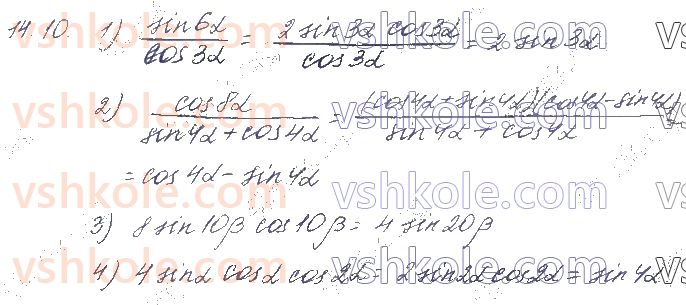 14.10. 1) sin6α/cos3α = 2 sin3α cos3α/cos3α = 2 sin3α
2) cos8α/(sin4α + cos4α) = (cos4α + sin4α)(cos4α - sin4α)/(sin4α + cos4α)
= cos4α - sin4α
3) 8 sin10β cos10β = 4 sin20β
4) 4 sinα cosα cos2α = 2 sin2α cos2α = sin4α
vshkole.com vshkole.com
vshkole.com vshkole.com
vshkole.com vshkole.com
vshkole.com vshkole.com